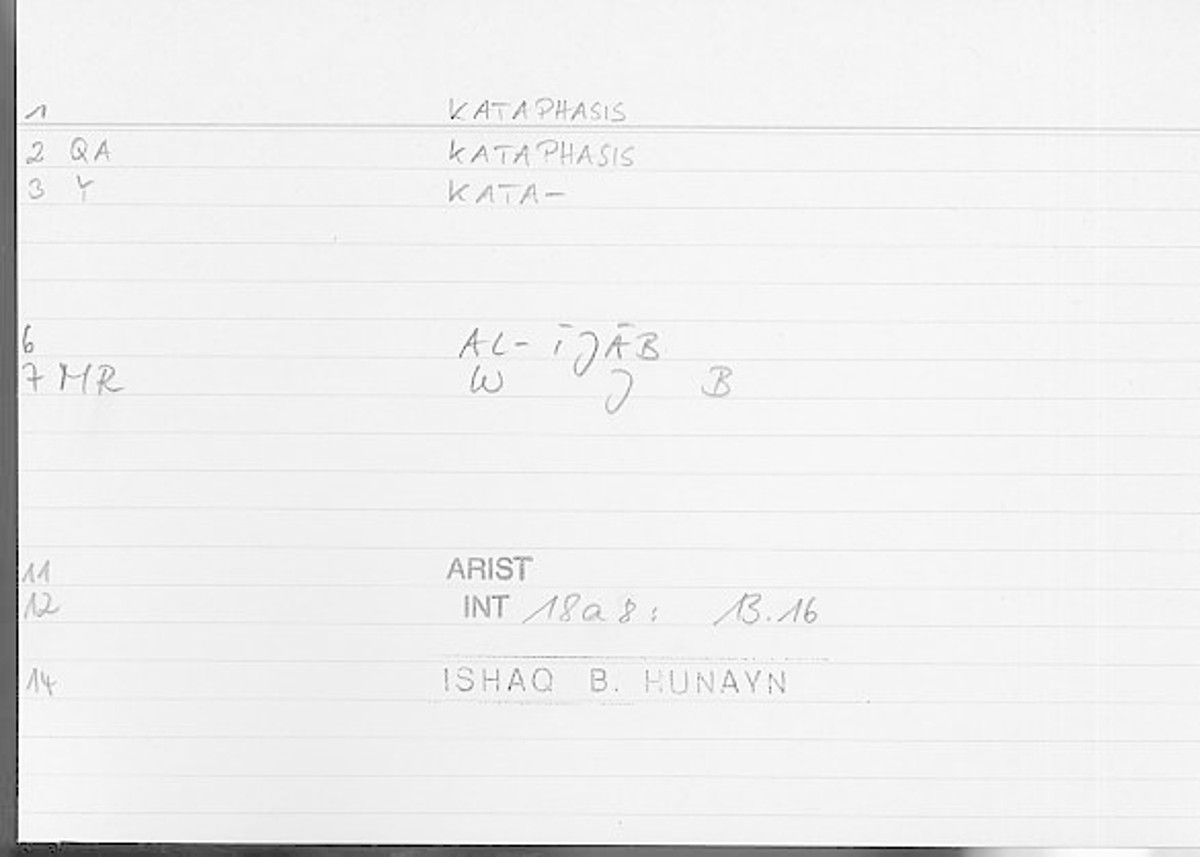 1 KATAPHASIS
2 QA KATAPHASIS
3 Y KATA-
6 AL-ĪJĀB
7 MR W J B
11 ARIST
12 INT 18a8: 13.16
14 ISHAQ B. HUNAYN